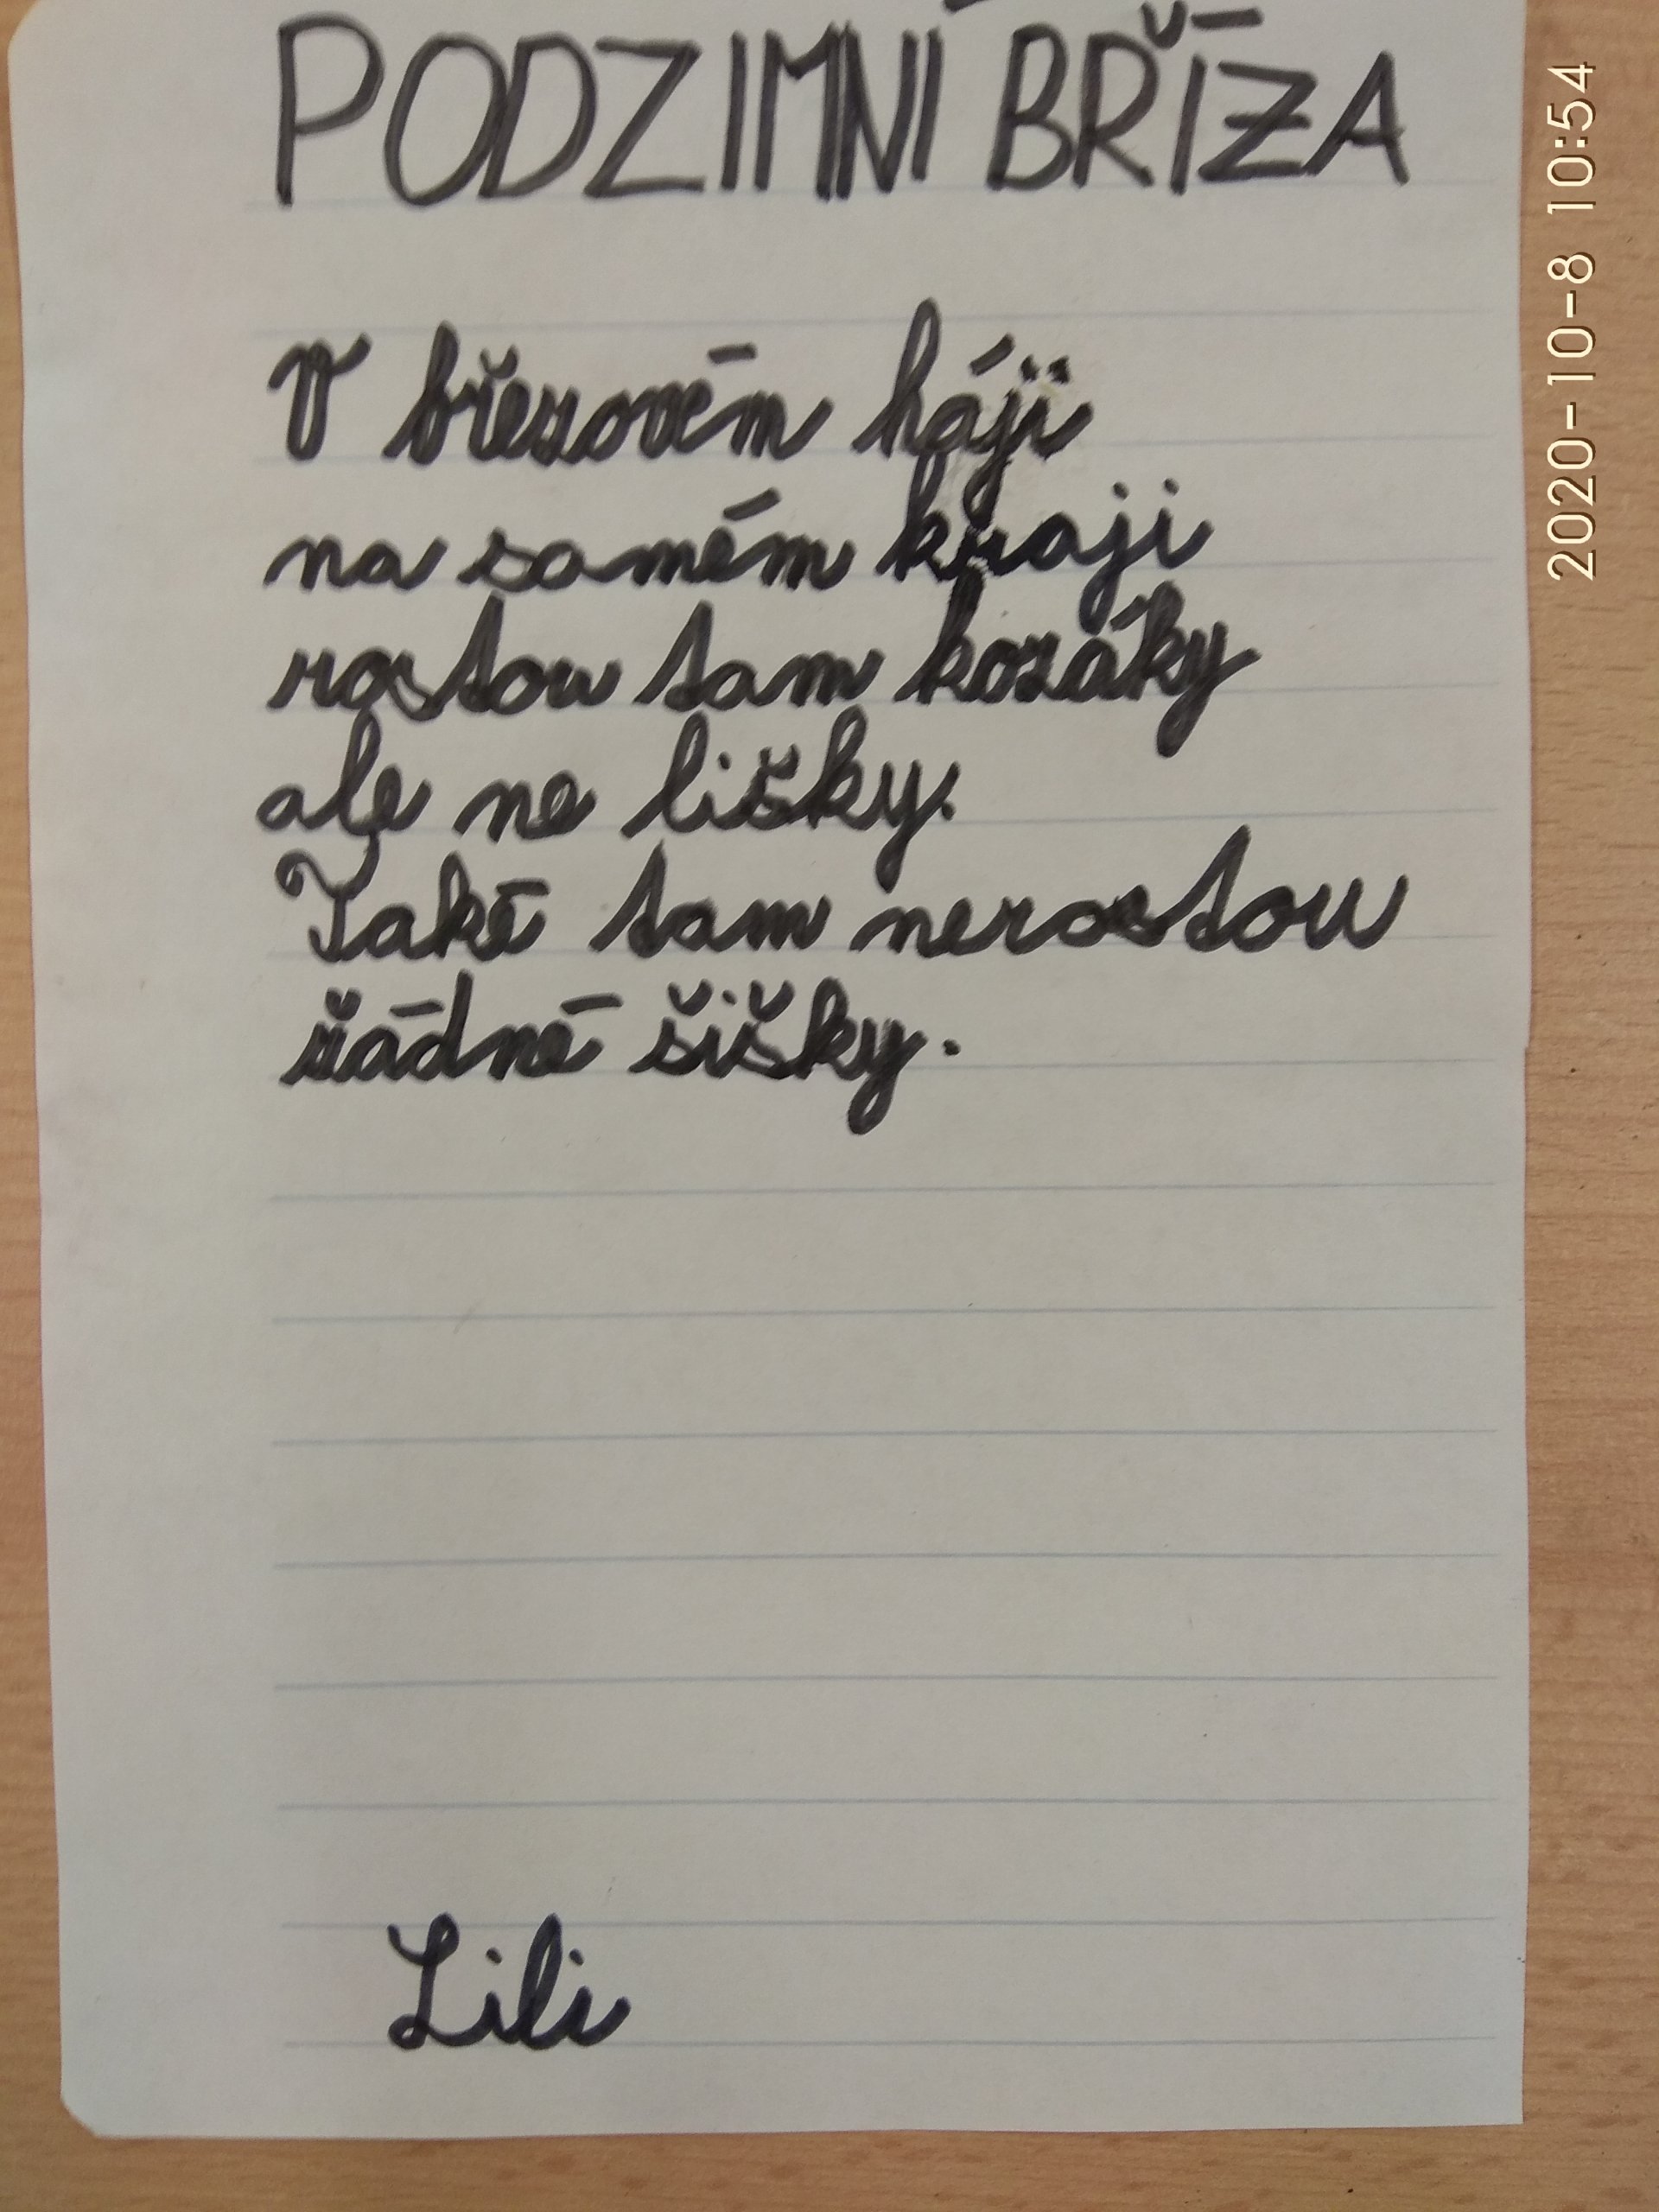 PODZIMNÍ BŘÍZA
V březovém háji
na samém kraji
rostou tam kozáky
ale ne lišky.
Také tam nerostou
žádné šišky.
Lili
2020-10-8 10:54